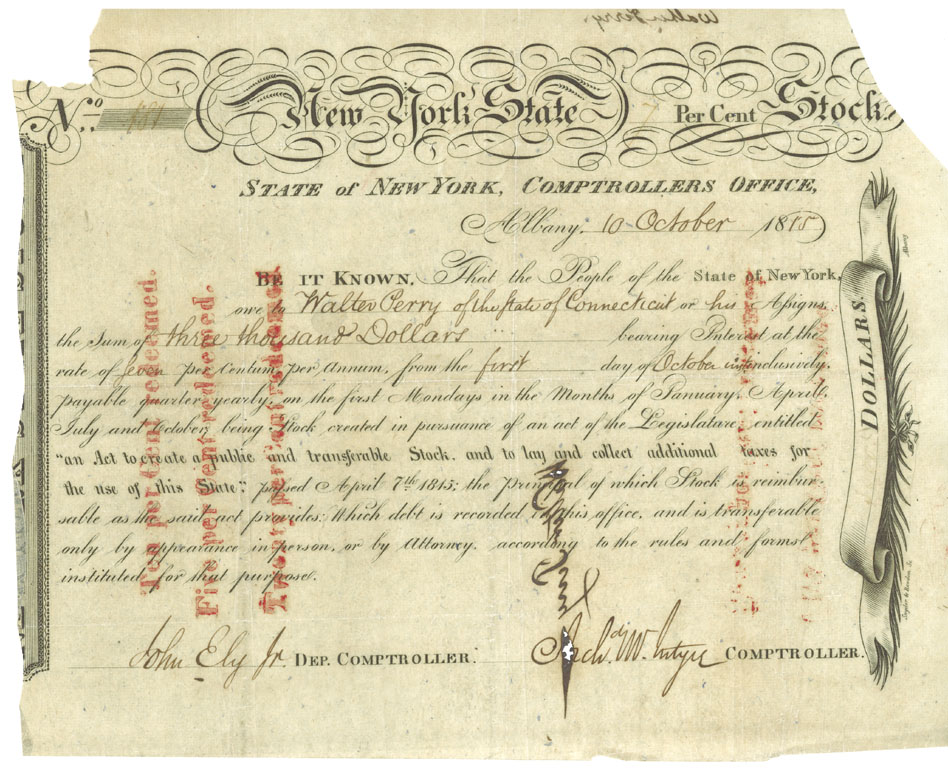 Walter Perry
No. 781 New York State 7 Per Cent Stock.
STATE of NEW YORK, COMPTROLLERS OFFICE,
Albany, 10 October 1815
BE IT KNOWN, That the People of the State of New York,
owe to Walter Perry of the State of Connecticut or his Assigns,
the Sum of three thousand Dollars bearing Interest at the
rate of seven per Centum, per Annum, from the first day of October inclusively,
payable quarter yearly, on the first Mondays in the Months of January, April,
July and October, being Stock created in pursuance of an act of the Legislature entitled
"an Act to create a public and transferable Stock, and to lay and collect additional taxes for
the use of this State", passed April 7th 1815; the principal of which Stock is reimbur-
sable as the said act provides: Which debt is recorded in this office, and is transferable
only by appearance in person, or by Attorney, according to the rules and forms
instituted for that purpose.
John Ely Jr. DEP. COMPTROLLER.
Archd. McIntyre COMPTROLLER.
Ten per Cent redeemed.
Five per Cent redeemed.
DOLLARS.